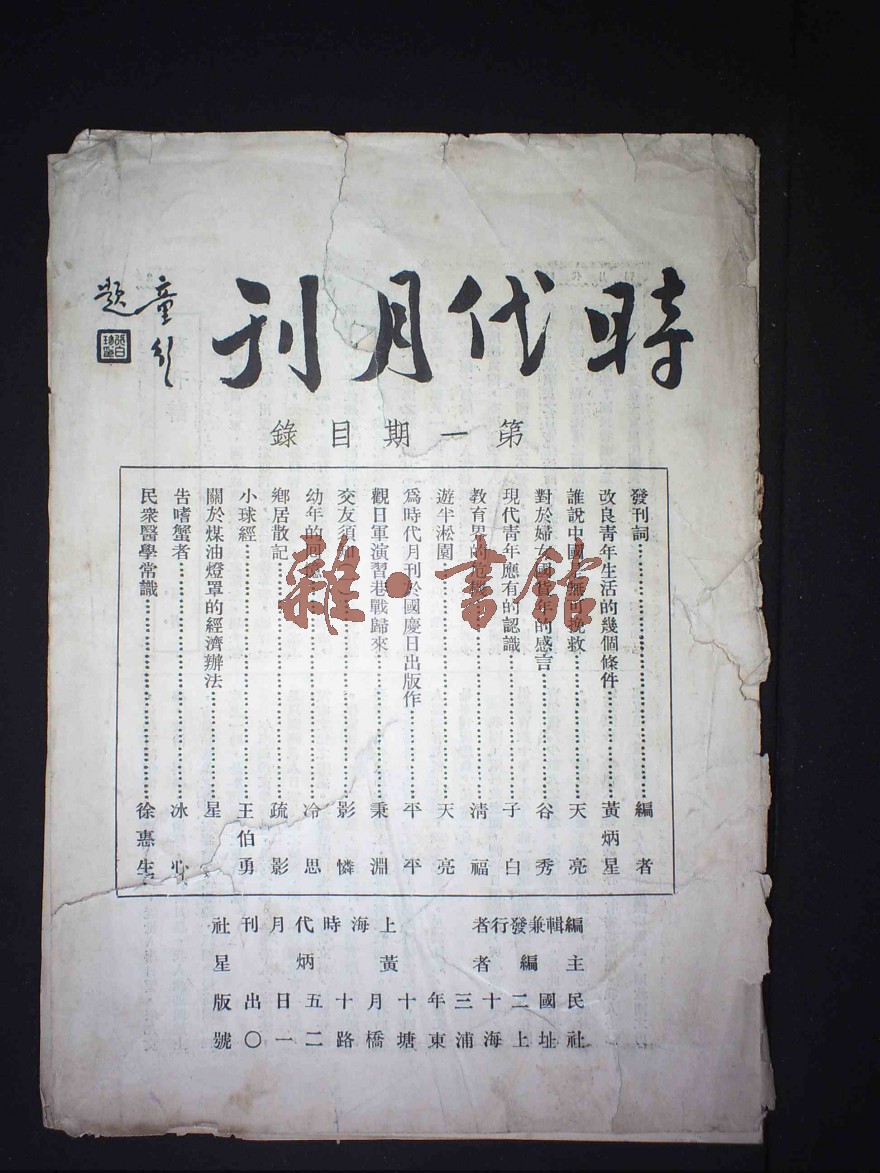 時代月刊
童行
題
第一期目錄
發刊詞 編者
改良青年生活的幾個條件 黃炳星
誰說中國 無可挽救 天亮
對於婦女國貨年的感言 谷秀
現代青年應有的認識 子白
教育界的危機 清福
遊半淞園 天亮
為時代月刊於國慶日出版作 平平
觀日軍演習巷戰歸來 秉淵
交友須知 影憐
幼年的回憶 冷思
鄉居散記 疏影
小球經 王伯勇
關於煤油燈罩的經濟辦法 星
告嗜蟹者 冰心
民衆醫學常識 徐惠生
編輯兼發行者 上海時代月刊社
主編者 黃炳星
民國二十三年十月十五日出版
社址上海浦東塘橋路二一〇號
雜·書館